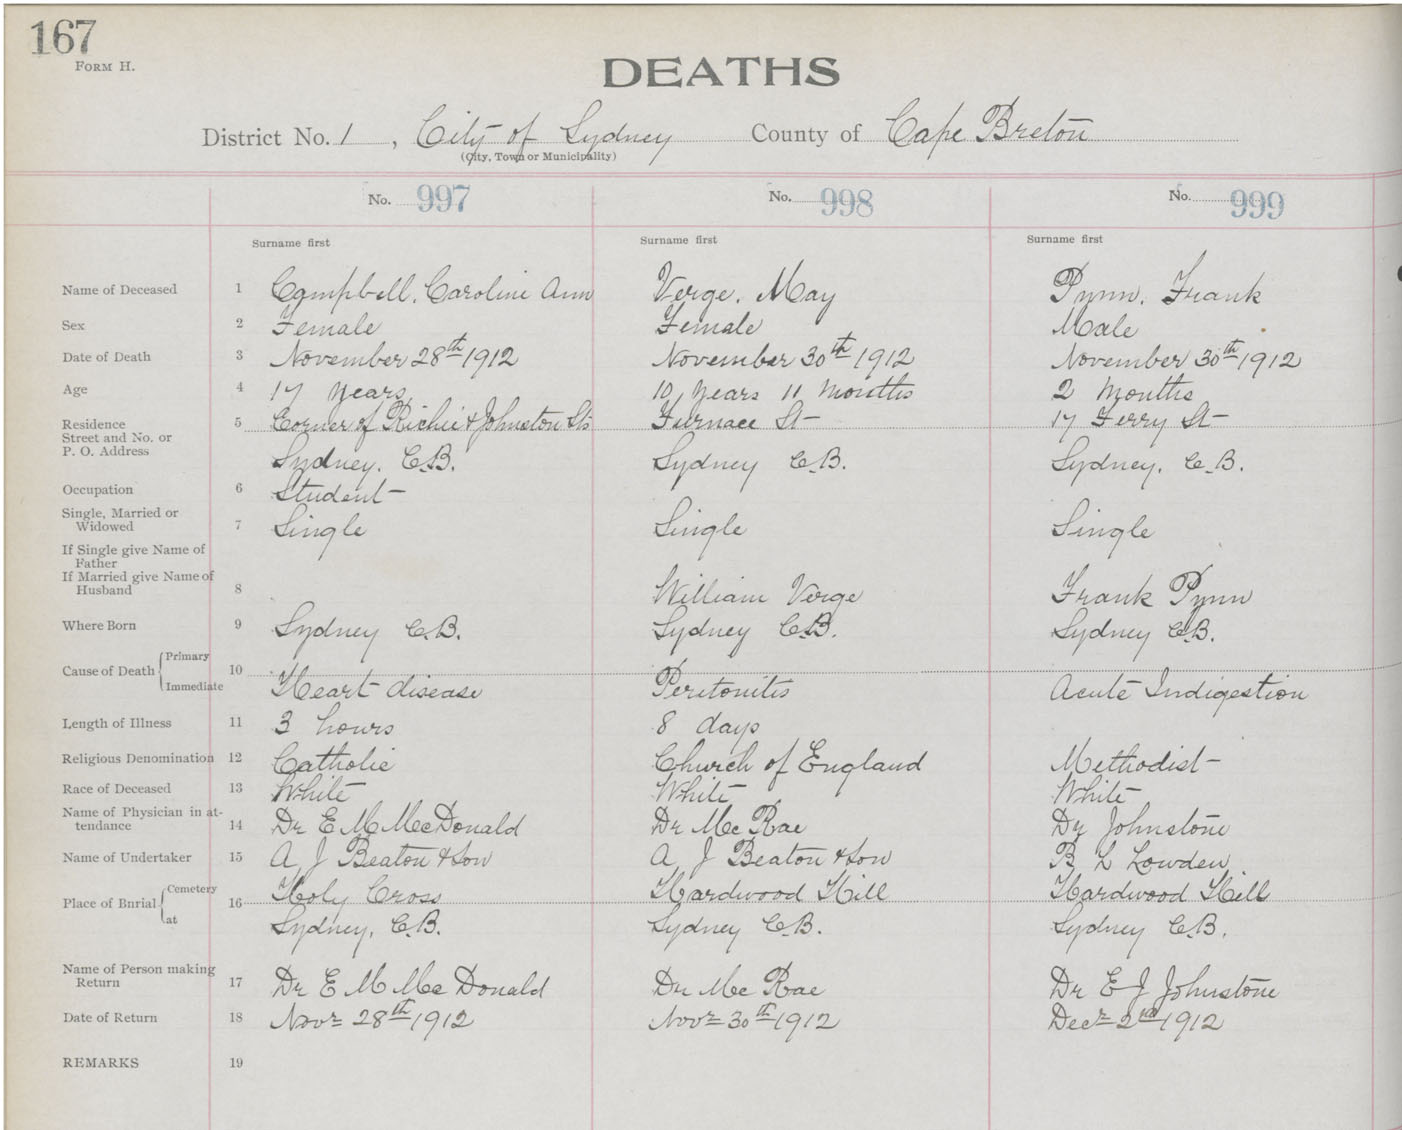 167
FORM H.
DEATHS
District No. 1, City of Sydney County of Cape Breton
(City, Town or Municipality)
No. 997 No. 998 No. 999
Surname first Surname first Surname first
Name of Deceased 1 Campbell, Caroline Ann Verge, May Pynn, Frank
Sex 2 Female Female Male
Date of Death 3 November 28th 1912 November 30th 1912 November 30th 1912
Age 4 17 Years 10 Years 11 Months 2 Months
Residence 5 Corner of Richie & Johnston Sts Furnace St 17 Ferry St
Street and No. or
P. O. Address Sydney, C.B. Sydney C.B. Sydney, C.B.
Occupation 6 Student
Single, Married or
Widowed 7 Single Single Single
If Single give Name of
Father
If Married give Name of
Husband 8 William Verge Frank Pynn
Where Born 9 Sydney C.B. Sydney C.B. Sydney C.B.
Primary
Cause of Death 10
Immediate Heart disease Peritonitis Acute Indigestion
Length of Illness 11 3 hours 8 days
Religious Denomination 12 Catholic Church of England Methodist
Race of Deceased 13 White White White
Name of Physician in at-
tendance 14 Dr E M McDonald Dr McRae Dr Johnstone
Name of Undertaker 15 A J Beaton & Son A J Beaton & Son B L Lowden
Cemetery
Place of Bnrial 16 Holy Cross Hardwood Hill Hardwood Hill
at Sydney, C.B. Sydney C.B. Sydney C.B.
Name of Person making
Return 17 Dr E M McDonald Dr McRae Dr E J Johnstone
Date of Return 18 Novr 28th 1912 Novr 30th 1912 Decr 2nd 1912
REMARKS 19